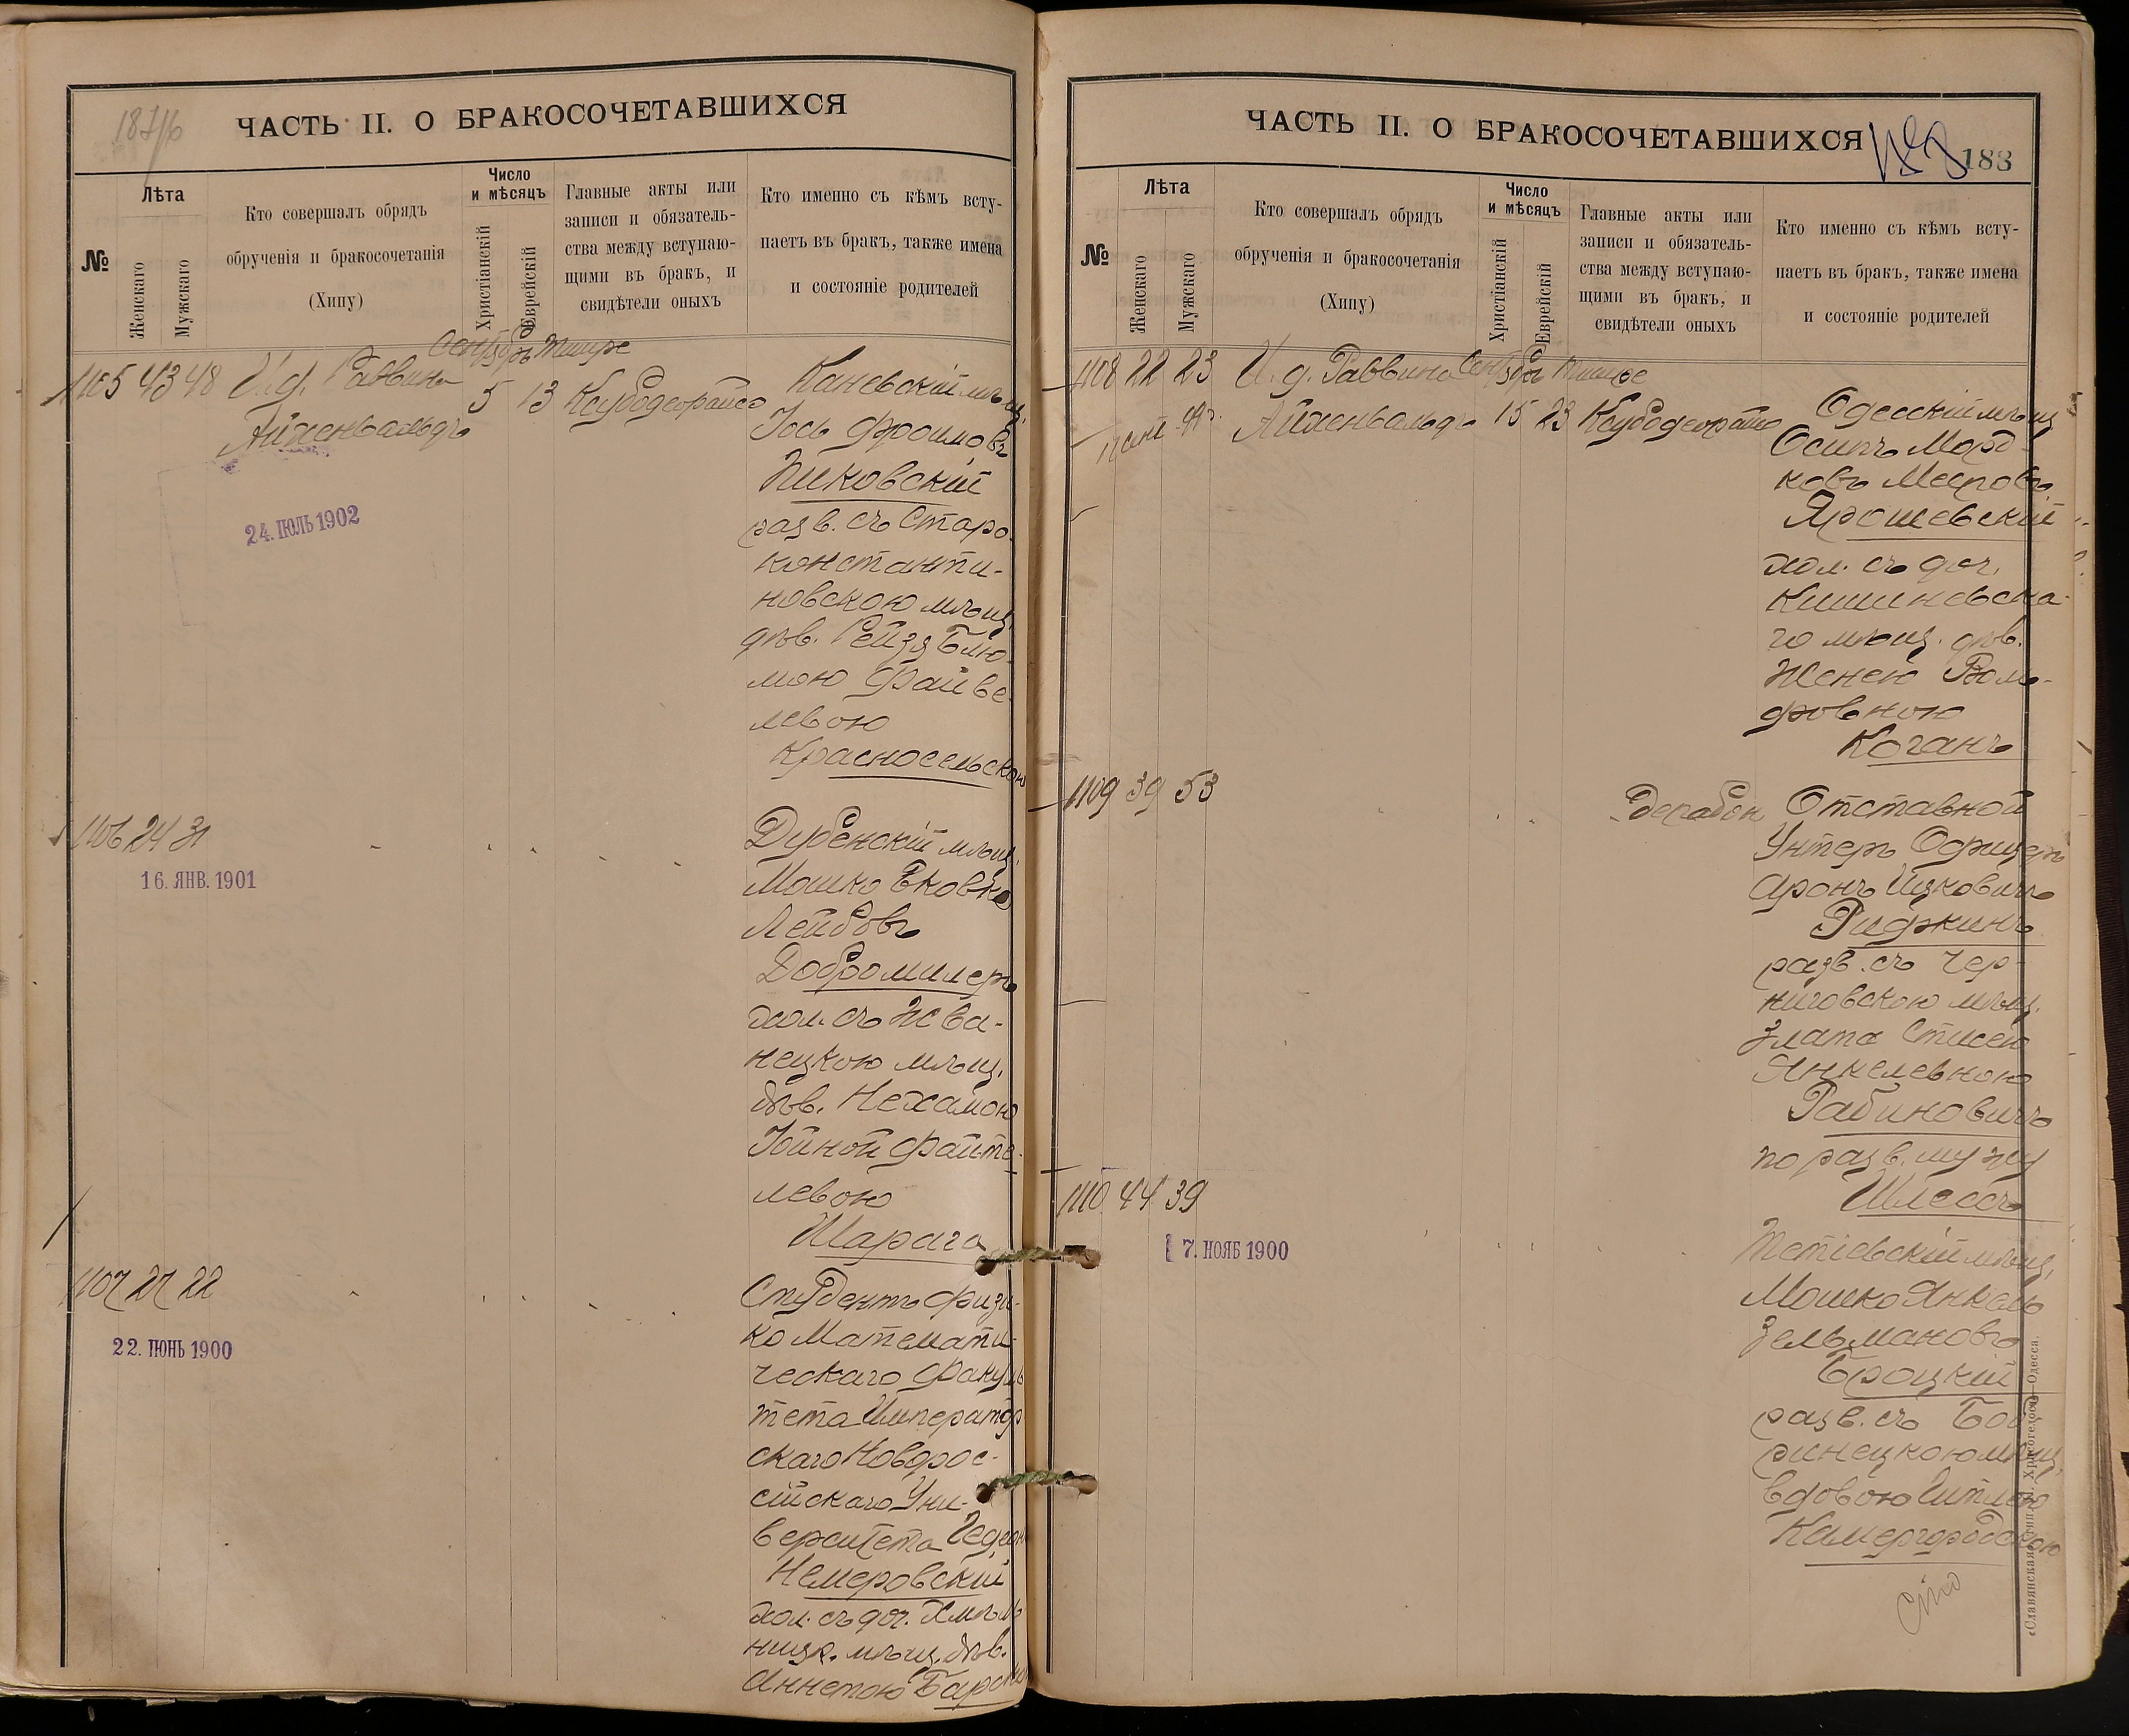 187/6
ЧАСТЬ II. О БРАКОСОЧЕТАВШИХСЯ
№
Лѣта
Женскаго
Мужскаго
Кто совершалъ обрядъ
обрученія и бракосочетанія
(Хипу)
Число
и мѣсяцъ
Христіанскій
Еврейскій
Главные акты или
записи и обязатель-
ства между вступаю-
щими въ бракъ, и
свидѣтели оныхъ
Кто именно съ кѣмъ всту-
паетъ въ бракъ, также имена
и состояніе родителей
Сентябрь Тишре
1105 43 48 И. д. Раввина
Айхенвальдъ
5 13
24. ІЮЛЬ 1902
Каневскій мѣщ.
Іось Фроимовъ
Пиковскій
разв. съ Старо-
константи-
новскою мѣщ.
дѣв. Рейзя Блю-
мою Файве-
левою
Красносельскою
1106 24 31
16. ЯНВ. 1901
Дубенскій мѣщ.
Мошко
Лейбовъ
Добромилеръ
хол. съ Жва-
нецкою мѣщ.
дѣв. Нехамою
Файте-
левою
Шарага
1107 27 22
22. ІЮНЬ 1900
Студентъ физи-
ко Математи-
ческаго Факуль
тета Император
скаго Новорос-
сійскаго Уни-
верситета
Немеровскій
хол. съ доч. Хмѣль
ницк. мѣщ. дѣв.
Аннетою
ЧАСТЬ II. О БРАКОСОЧЕТАВШИХСЯ
183
№
Лѣта
Женскаго
Мужскаго
Кто совершалъ обрядъ
обрученія и бракосочетанія
(Хипу)
Число
и мѣсяцъ
Христіанскій
Еврейскій
Главные акты или
записи и обязатель-
ства между вступаю-
щими въ бракъ, и
свидѣтели оныхъ
Кто именно съ кѣмъ всту-
паетъ въ бракъ, также имена
и состояніе родителей
1108 22 23 И. д. Раввина Сентябрь Тишре
Айхенвальдъ 15 23
Одесскій мѣщ
Осипъ Морд-
ковъ Мееровъ
Ярошевскій
хол. съ доч.
Кишиневска-
го мѣщ. дѣв.
Женею Воль-
фовною
Коганъ
1109 39 53
Отставной
Унтеръ Офицеръ
Аронъ Ицковичъ
разв. съ Чер-
ниговскою мѣщ.
Злата
Янкелевною
Рабиновичъ
по разв. мужу
1110 44 39
7. НОЯБ 1900
Тетіевскій мѣщ.
Мошко Янкель
Зельмановъ
Броцкій
разв. съ Боб-
ринецкою мѣщ.
вдовою Гитлею
Камергородскою